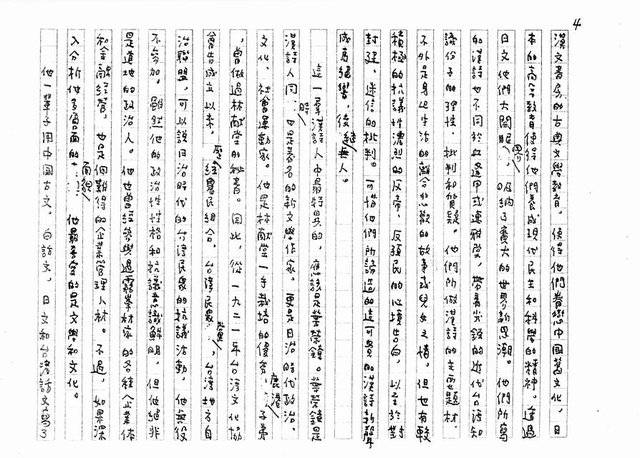 4
漢文書房的古典文學教育，使得他們眷戀中國舊文化，日
本的高等教育使得他們養成現代民主和科學的精神。透過
日文他們大開眼界，吸納了廣大的世界新思潮。他們所寫
的漢詩也不同於丘逢甲或連雅堂，帶着尖銳的近代台灣知
識份子的理性、批判和質疑。他們所做漢詩的主要題材，
不外是身邊生活的離合悲歡的故事或兒女之情。但也有較
積極的抗議性濃烈的反帝、反殖民的心境告白，以至於對
封建、迷信的批判。可惜他們所締造的這可貴的漢詩新聲
成為絕響，後繼無人。
這一羣漢詩人中最特異的，應該是葉榮鐘。葉榮鐘是
漢詩人同時也是著名的新文學作家。更是日治時代政治、
文化、社會運動家。他是林獻堂一手栽培的優秀鹿港子弟
，曾做過林獻堂的秘書。因此，從一九二一年台灣文化協
會告成立以來，歷經農民組合、台灣民眾黨、台灣地方自
治聯盟，可以說日治時代的台灣民眾的抗議活動，他無役
不參加。雖然他的政治性性格和抗議意識鮮明，但他絕非
是道地的政治人。他也曾經參與過霧峯林家的各種企業体
和金融經營，也是個難得的企業管理人材。不過，如果深
入分析他多角面的面貌，他最希望的是文學和文化。
他一輩子用中國古文，白話文，日文和台灣話文寫了